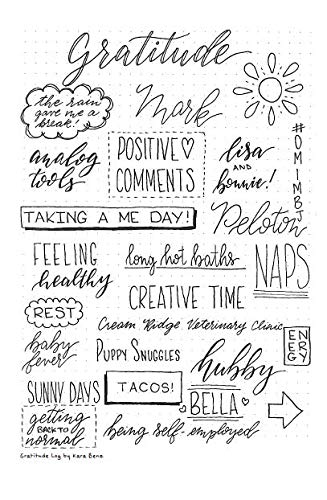 Gratitude
the rain
gave me a
break!
Mark
analog
tools
POSITIVE♡
COMMENTS
lisa
AND
bonnie!
#OMIMBJ
TAKING A ME DAY!
Peloton
FEELING
healthy
long hot baths
NAPS
CREATIVE TIME
REST
Cream Ridge Veterinary Clinic
ENERGY
baby
fever
PUPPY SNUGGLES
hubby
SUNNY DAYS
TACOS!
BELLA
getting
BACK TO
normal
being self-employed
Gratitude Log by Kara Benz